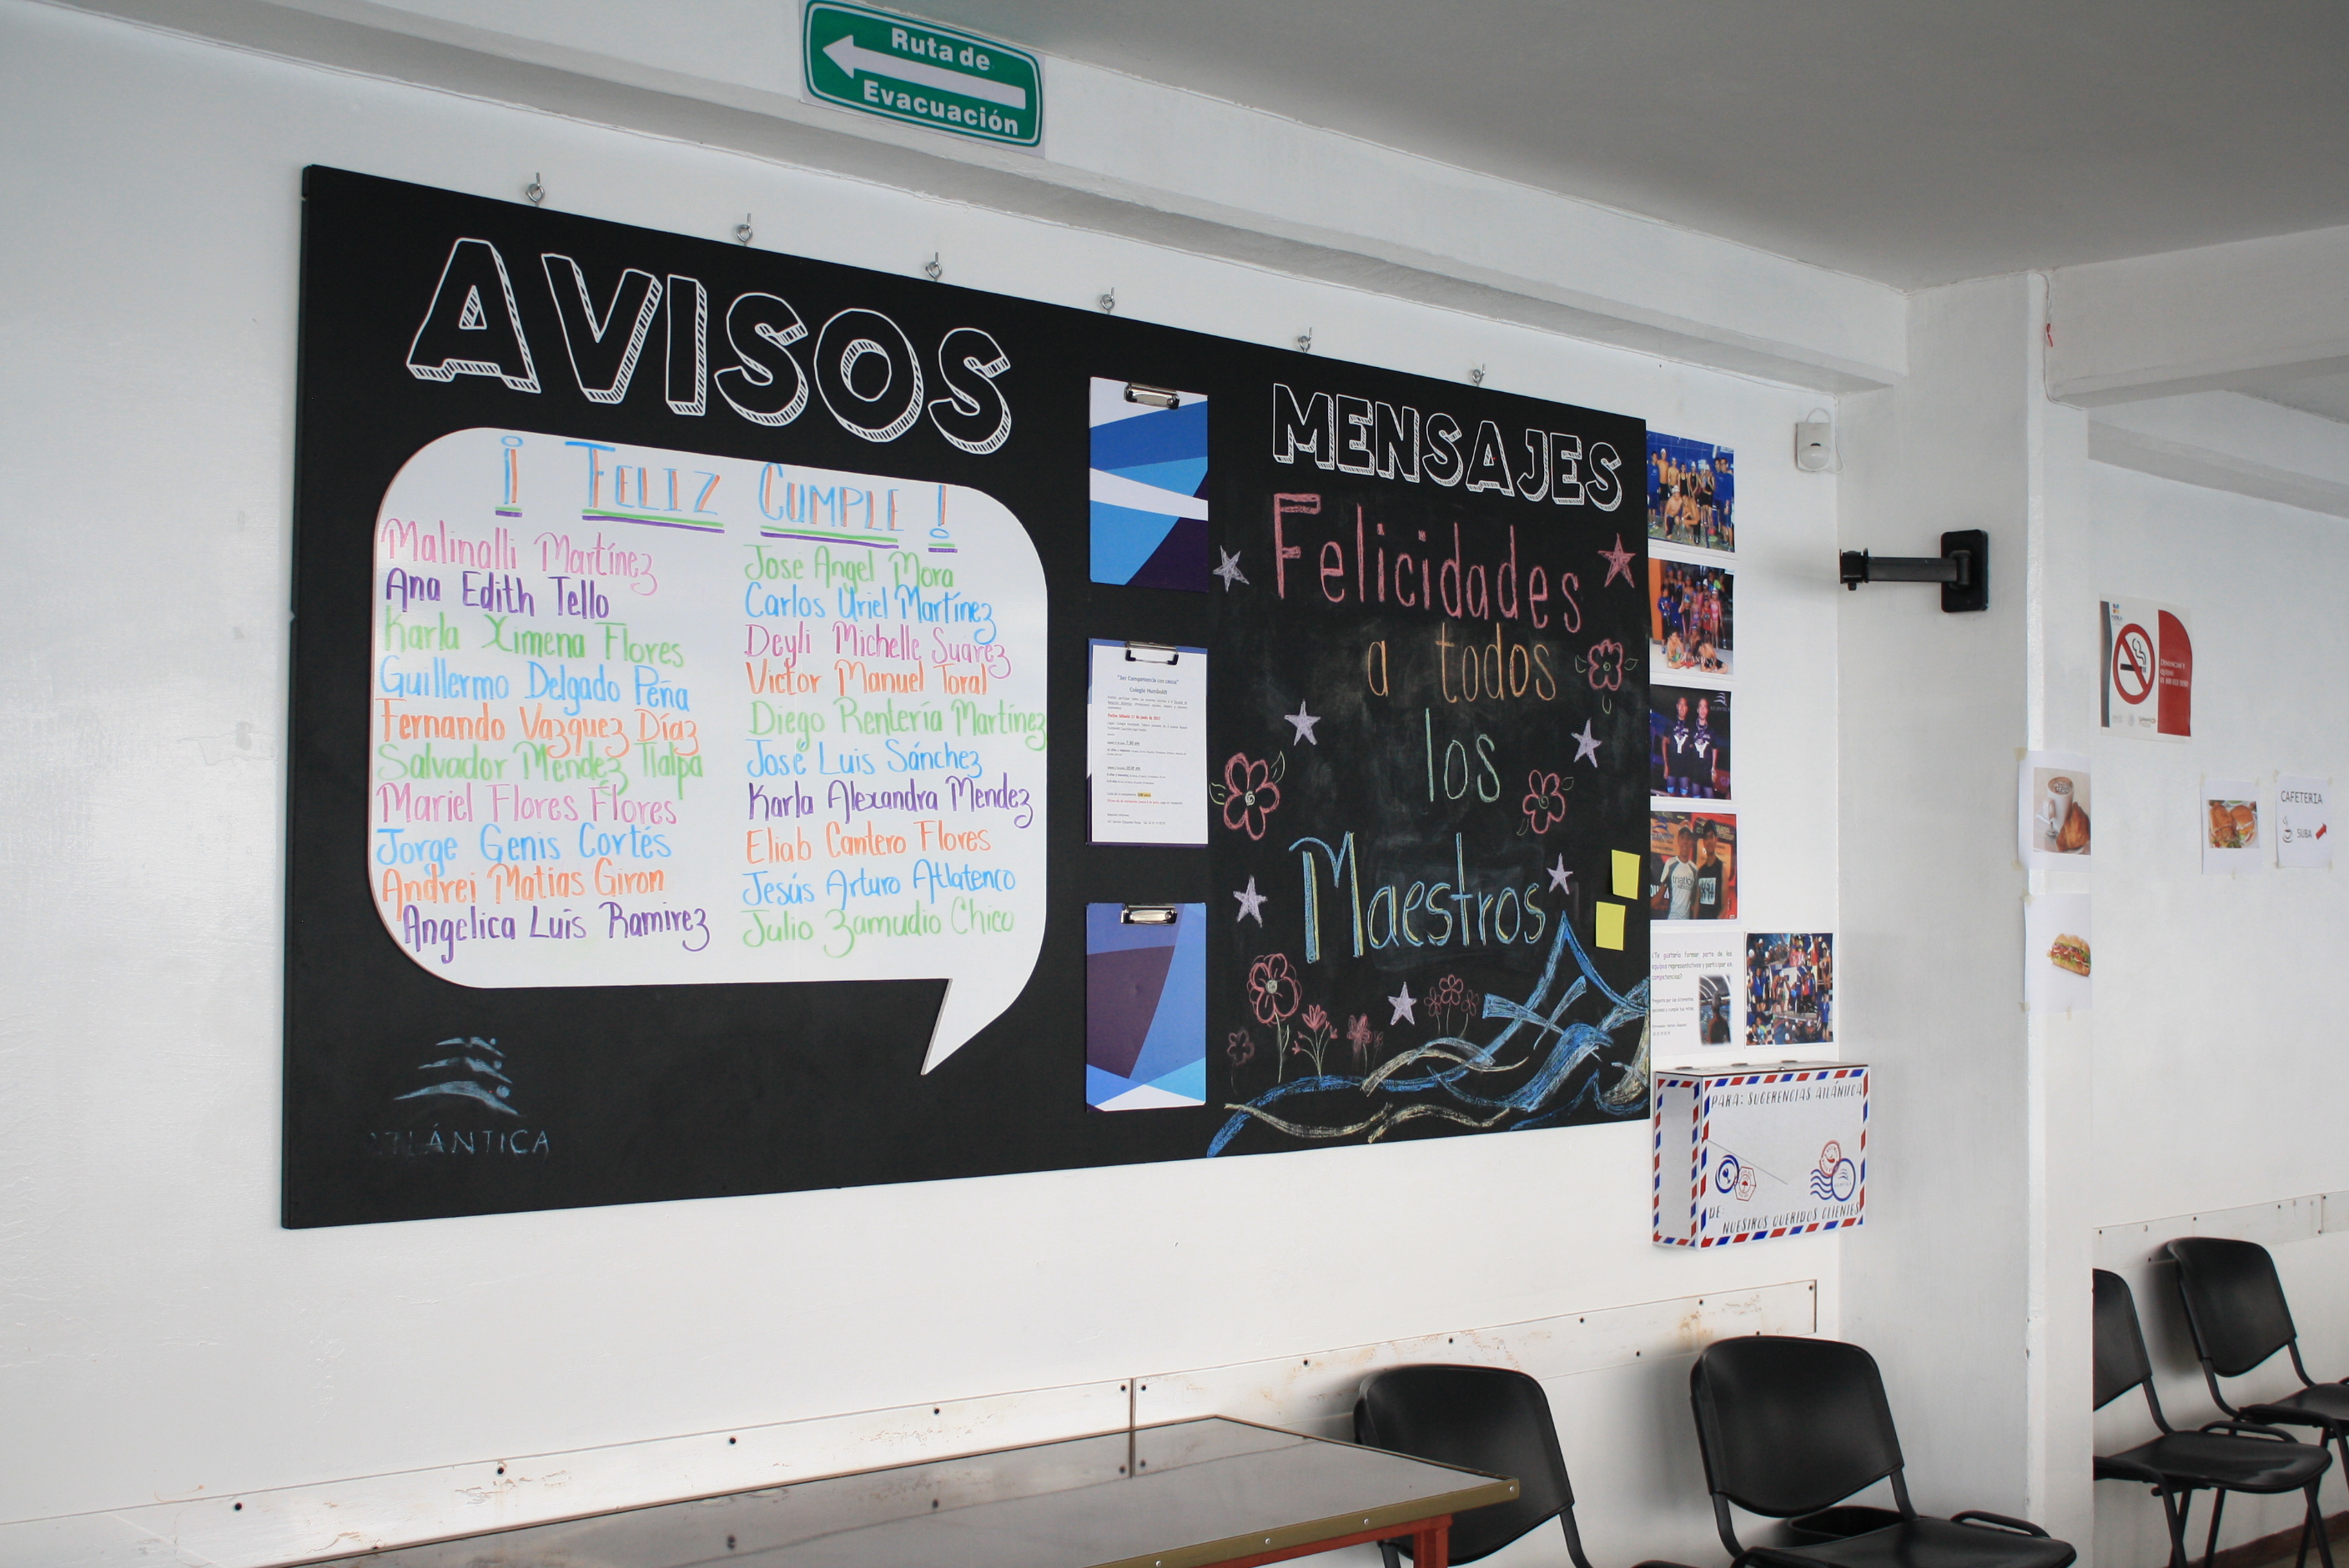 Ruta de
Evacuación
AVISOS
¡ FELIZ CUMPLE !
Malinalli Martínez
Ana Edith Tello
Karla Ximena Flores
Guillermo Delgado Peña
Fernando Vazquez Díaz
Salvador Méndez Tlalpa
Mariel Flores Flores
Jorge Genis Cortés
Andrei Matias Giron
Angelica Luis Ramirez
Jose Angel Mora
Carlos Uriel Martínez
Deyli Michelle Suarez
Victor Manuel Toral
Diego Rentería Martínez
José Luis Sánchez
Karla Alexandra Mendez
Eliab Cantero Flores
Jesús Arturo Atlatenco
Julio Zamudio Chico
ATLÁNTICA
"Ser Competencia con causa"
Colegio Humboldt
MENSAJES
Felicidades
a todos
los
Maestros
¿Te gustaría formar parte de los
equipos representativos y participar en
competencias?
PARA: SUGERENCIAS ATLÁNTICA
DE:
NUESTROS QUERIDOS CLIENTES
CAFETERIA
SUBA